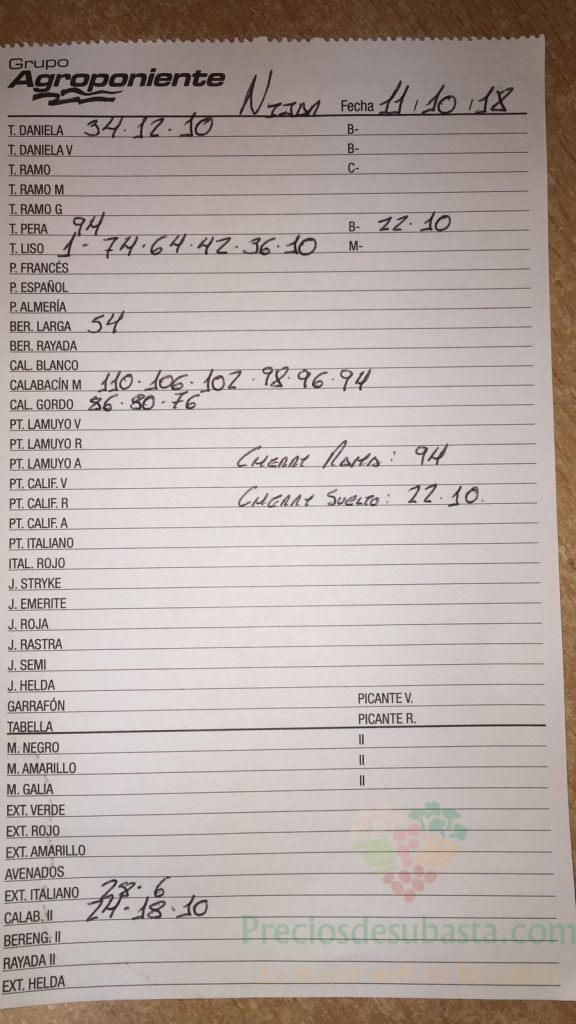 Grupo
Agroponiente
NIJAR Fecha 11/10/18
T. DANIELA 34·12·10 B-
T. DANIELA V B-
T. RAMO C-
T. RAMO M
T. RAMO G
T. PERA 94 B- 22·10
T. LISO 1·74·64·42·36·10 M-
P. FRANCÉS
P. ESPAÑOL
P. ALMERÍA
BER. LARGA 54
BER. RAYADA
CAL. BLANCO
CALABACÍN M 110·106·102·98·96·94
CAL. GORDO 86·80·76
PT. LAMUYO V
PT. LAMUYO R
PT. LAMUYO A CHERRY RAMA: 94
PT. CALIF. V
PT. CALIF. R CHERRY SUELTO: 22·10.
PT. CALIF. A
PT. ITALIANO
ITAL. ROJO
J. STRYKE
J. EMERITE
J. ROJA
J. RASTRA
J. SEMI
J. HELDA
GARRAFÓN PICANTE V.
TABELLA PICANTE R.
M. NEGRO II
M. AMARILLO II
M. GALIA II
EXT. VERDE
EXT. ROJO
EXT. AMARILLO
AVENADOS
EXT. ITALIANO 28·6
CALAB. II 24·18·10
BERENG. II Preciosdesubasta.com
RAYADA II
EXT. HELDA